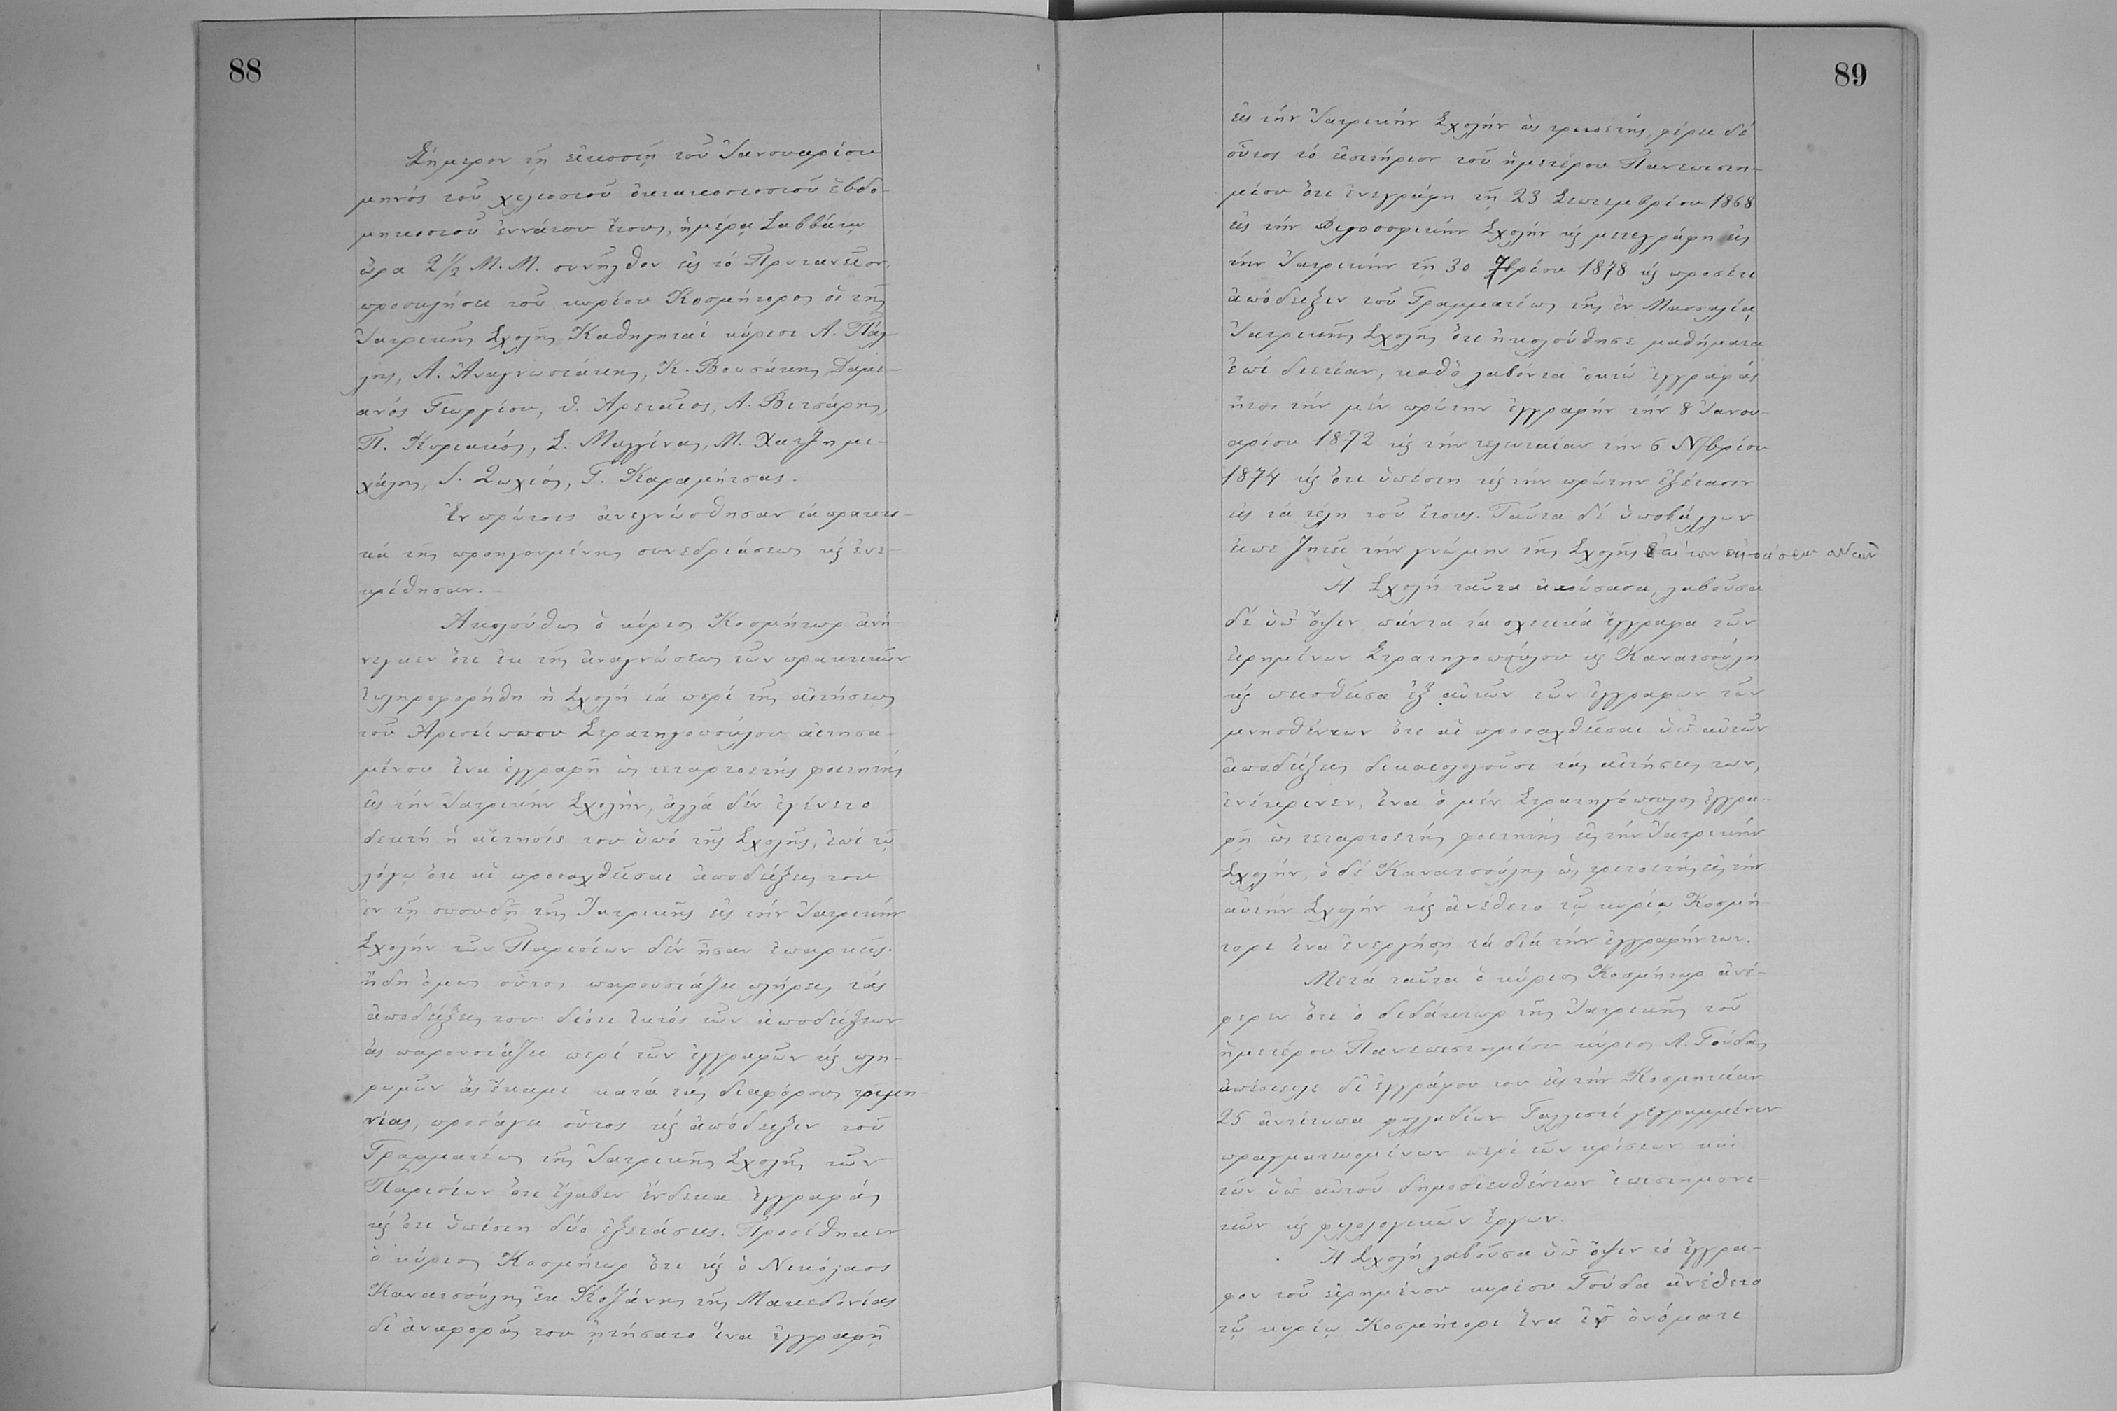 88
Σήμερον τῇ εἰκοστῇ τοῦ Ἰανουαρίου
μηνός τοῦ χιλιοστοῦ ὀκτακοσιοστοῦ ἑβδο-
μηκοστοῦ ἐννάτου ἔτους, ἡμέρᾳ Σαββάτῳ
ὥρα 2 1/2 Μ.Μ. συνῆλθον εἰς τό Πρυτανεῖον,
προσκλήσει τοῦ κυρίου Κοσμήτορος οἱ τῆς
Ἰατρικῆς Σχολῆς Καθηγηταί κύριοι Α. Πάλ-
λης, Α. Ἀναγνωστάκης, Κ. Βουσάκης, Δαμι-
ανός Γεωργίου, Θ. Ἀρεταῖος, Α. Βιτσάρης,
Π. Κυριακός, Σ. Μαγγίνας, Μ. Χατζημι-
χάλης, Ι. Ζωχιός, Γ. Καραμήτσας.
Ἐν πρώτοις ἀνεγνώσθησαν τά πρακτι-
κά τῆς προηγουμένης συνεδριάσεως καί ἐνε-
κρίθησαν.
Ἀκολούθως ὁ κύριος Κοσμήτωρ ἀνή-
νεγκεν ὅτι ἐκ τῆς ἀναγνώσεως τῶν πρακτικῶν
ἐπληροφορήθη ἡ Σχολή τά περί τῆς αἰτήσεως
τοῦ Ἀριστίππου Στρατηγοπούλου αἰτησα-
μένου ἵνα ἐγγραφῇ ὡς τεταρτοετής φοιτητής
εἰς τήν Ἰατρικήν Σχολήν, ἀλλά δέν ἐγένετο
δεκτή ἡ αἴτησίς του ὑπό τῆς Σχολῆς, ἐπί τῷ
λόγῳ ὅτι αἱ προσαχθεῖσαι ἀποδείξεις του
ἐν τῇ σπουδῇ τῆς Ἰατρικῆς εἰς τήν Ἰατρικήν
Σχολήν τῶν Παρισίων δέν ἦσαν ἐπαρκεῖς.
ἤδη ὅμως οὗτος παρουσιάζει πλήρεις τάς
ἀποδείξεις του διότι ἐκτός τῶν ἀποδείξεων
ἅς παρουσιάζει περί τῶν ἐγγραφῶν καί πλη-
ρωμῶν ἅς ἔκαμε κατά τάς διαφόρους τριμη-
νίας, προσάγει οὗτος καί ἀπόδειξιν τοῦ
Γραμματέως τῆς Ἰατρικῆς Σχολῆς τῶν
Παρισίων ὅτι ἔλαβεν ἕνδεκα ἐγγραφάς
καί ὅτι ὑπέστη δύο ἐξετάσεις. Προσέθηκεν
ὁ κύριος Κοσμήτωρ ὅτι καί ὁ Νικόλαος
Κανατσούλης ἐκ Κοζάνης τῆς Μακεδονίας
δι' ἀναφορᾶς του ᾐτήσατο ἵνα ἐγγραφῇ
89
εἰς τήν Ἰατρικήν Σχολήν ὡς τριτοετής, φέρει δέ
οὗτος τό εἰσιτήριον τοῦ ἡμετέρου Πανεπιστη-
μίου ὅτι ἐνεγράφη τῇ 23 Σεπτεμβρίου 1868
εἰς τήν Φιλοσοφικήν Σχολήν καί μετεγράφη εἰς
τήν Ἰατρικήν τῇ 30 7βρίου 1878 καί προσέτι
ἀπόδειξιν τοῦ Γραμματέως τῆς ἐν Μασσαλίᾳ
Ἰατρικῆς Σχολῆς ὅτι ἠκολούθησε μαθήματα
ἐπί διετίαν, καθό λαβόντα ὀκτώ ἐγγραφάς
ἤτοι τήν μέν πρώτην ἐγγραφήν τήν 8 Ἰανου-
αρίου 1872 καί τήν τελευταίαν τήν 6 Ν/βρίου
1874 καί ὅτι ὑπέστη καί τήν πρώτην ἐξέτασιν
εἰς τά τέλη τοῦ ἔτους. Ταῦτα δέ ὑποβάλλων
εἶπε ζητεῖ τήν γνώμην τῆς Σχολῆς ἐπί τῶν αἰτήσεων αὐτῶν
Ἡ Σχολή ταῦτα ἀκούσασα, λαβοῦσα
δέ ὑπ' ὄψιν πάντα τά σχετικά ἔγγραφα τῶν
εἰρημένων Στρατηγοπούλου καί Κανατσούλη
καί πεισθεῖσα ἐξ αὐτῶν τῶν ἐγγράφων τῶν
μνησθέντων ὅτι αἱ προσαχθεῖσαι ὑπ' αὐτῶν
ἀποδείξεις δικαιολογοῦσι τάς αἰτήσεις των,
ἐνέκρινεν, ἵνα ὁ μέν Στρατηγόπουλος ἐγγρα-
φῇ ὡς τεταρτοετής φοιτητής εἰς τήν Ἰατρικήν
Σχολήν, ὁ δέ Κανατσούλης ὡς τριτοετής εἰς τήν
αὐτήν Σχολήν καί ἀνέθετο τῷ κυρίῳ Κοσμή-
τορι ἵνα ἐνεργήσῃ τά διά τήν ἐγγραφήν των.
Μετά ταῦτα ὁ κύριος Κοσμήτωρ ἀνέ-
φερεν ὅτι ὁ διδάκτωρ τῆς Ἰατρικῆς τοῦ
ἡμετέρου Πανεπιστημίου κύριος Α. Γούδας
ἀπέστειλε δι' ἐγγράφου του εἰς τήν Κοσμητείαν
25 ἀντίτυπα φυλλαδίων Γαλλιστί γεγραμμένων
πραγματευομένων περί τῶν κρίσεων καί
τῶν ὑπ' αὐτοῦ δημοσιευθέντων ἐπιστημονι-
κῶν καί φιλολογικῶν ἔργων.
Ἡ Σχολή λαβοῦσα ὑπ' ὄψιν τό ἔγγρα-
φον τοῦ εἰρημένου κυρίου Γούδα ἀνέθετο
τῷ κυρίῳ Κοσμήτορι ἵνα ἐπ' ὀνόματι